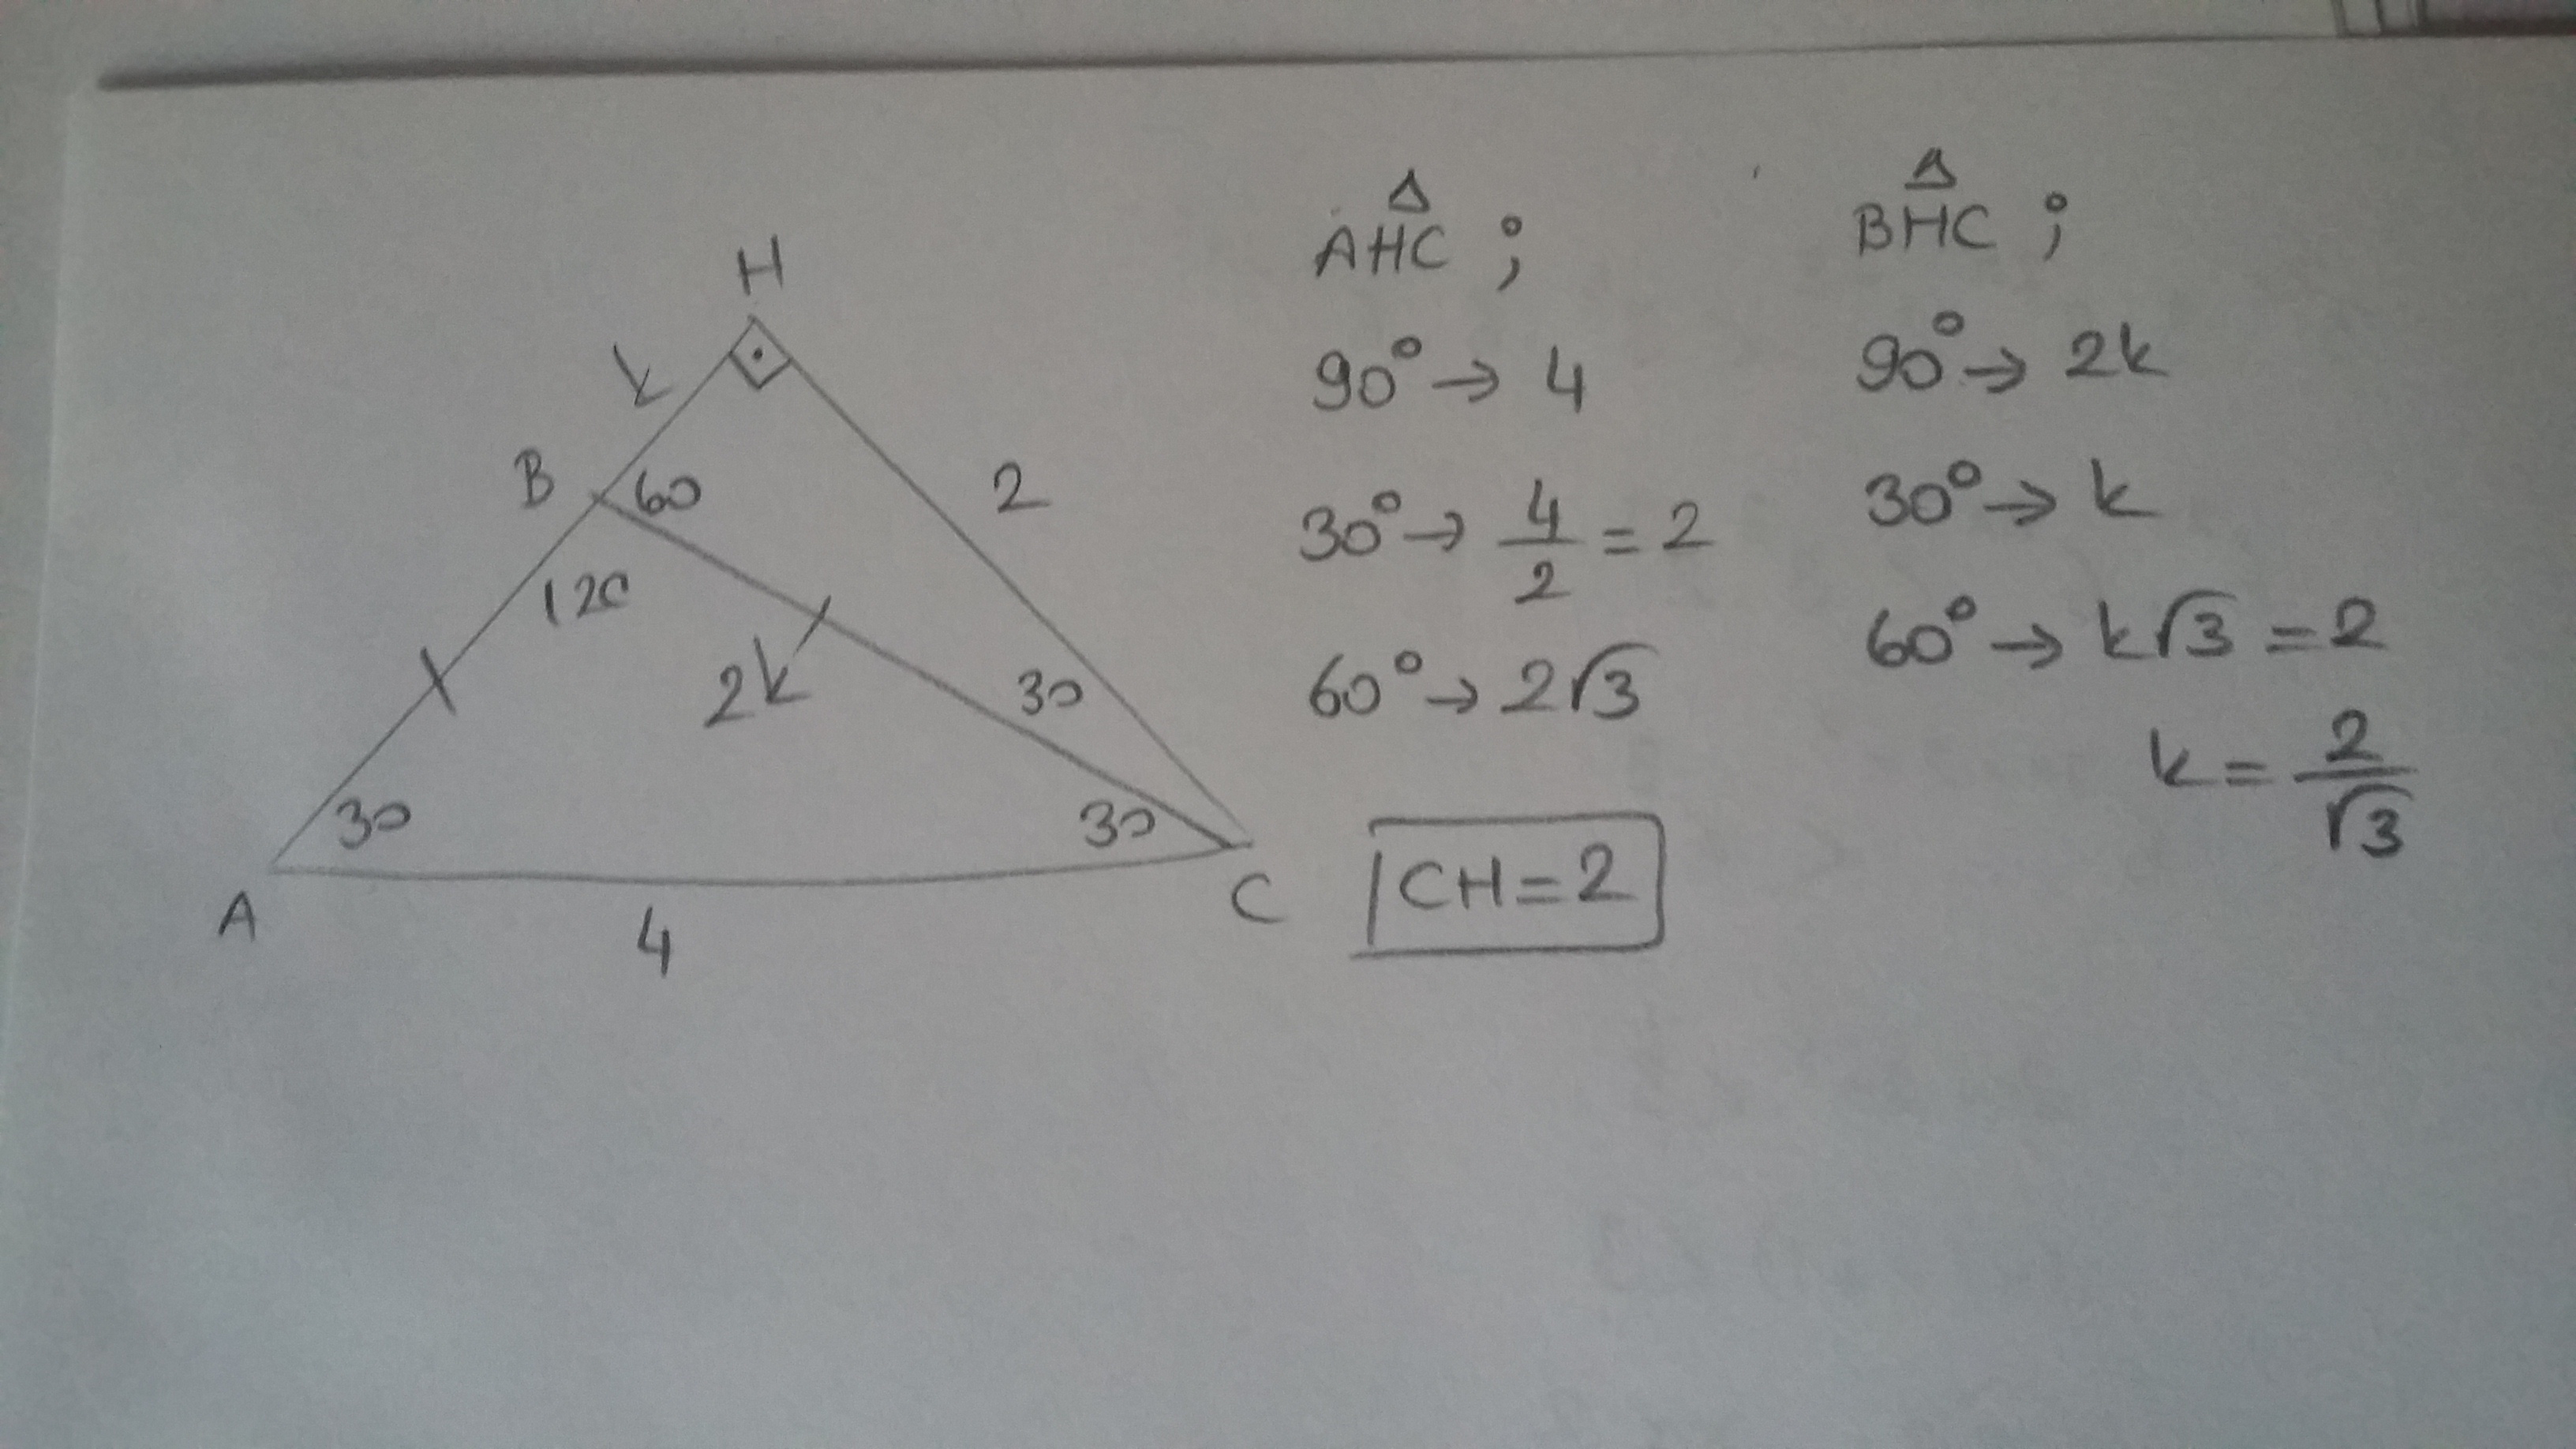 H
k
B 60
2
120
2k
30
30
30
A
4
C
Δ
AHC ;
90° → 4
30° → 4/2 = 2
60° → 2√3
|CH = 2
Δ
BHC ;
90° → 2k
30° → k
60° → k√3 = 2
k = 2/√3